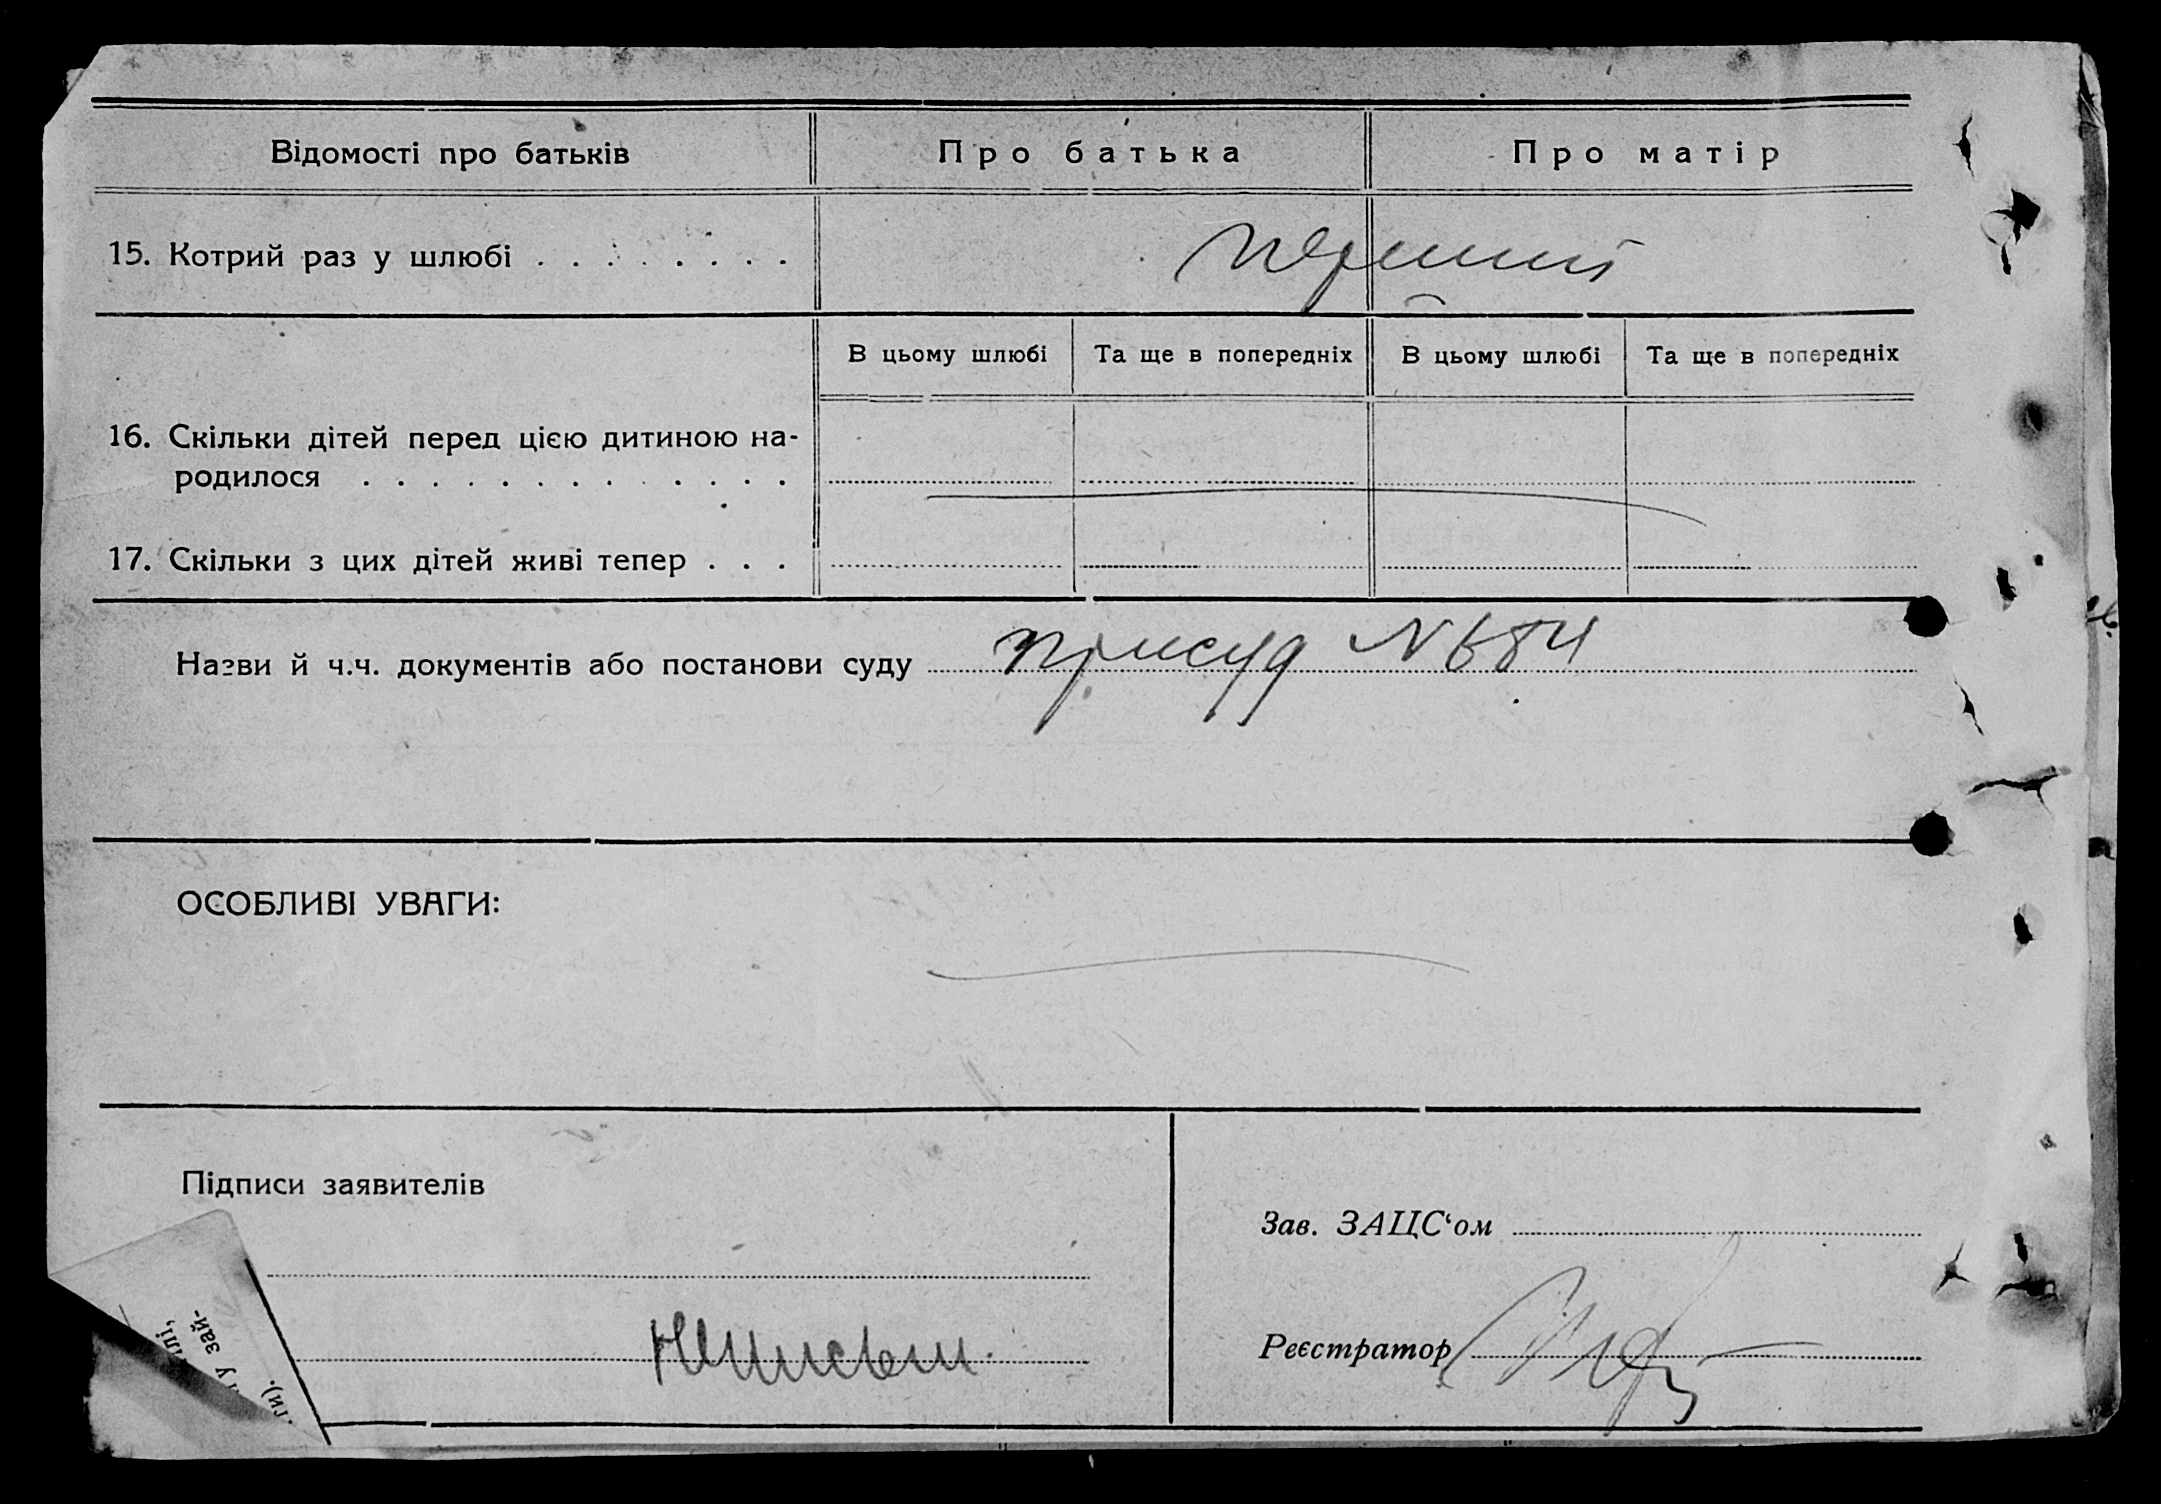 Відомості про батьків Про батька Про матір
15. Котрий раз у шлюбі . . . . . . . . перший
В цьому шлюбі Та ще в попередніх В цьому шлюбі Та ще в попередніх
16. Скільки дітей перед цією дитиною на-
родилося . . . . . . . . . . . . .
17. Скільки з цих дітей живі тепер . . .
Назви й ч.ч. документів або постанови суду присуд N684
ОСОБЛИВІ УВАГИ:
Підписи заявителів
Зав. ЗАЦС‘ом
Реєстратор
у зай-